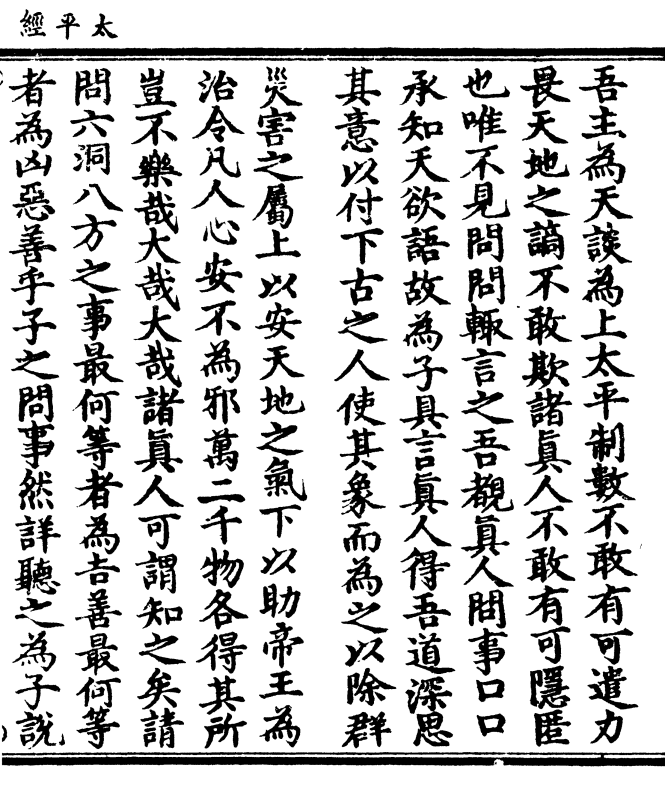 太平經
吾主為天談為上太平制數不敢有可遣力
畏天地之謫不敢欺諸眞人不敢有可隱匿
也唯不見問問輙言之吾覩眞人問事口口
承知天欲語故為子具言眞人得吾道深思
其意以付下古之人使其象而為之以除群
災害之屬上以安天地之氣下以助帝王為
治令凡人心安不為邪萬二千物各得其所
豈不樂哉大哉大哉諸眞人可謂知之矣請
問六洞八方之事最何等者為吉善最何等
者為凶惡善乎子之問事然詳聽之為子說